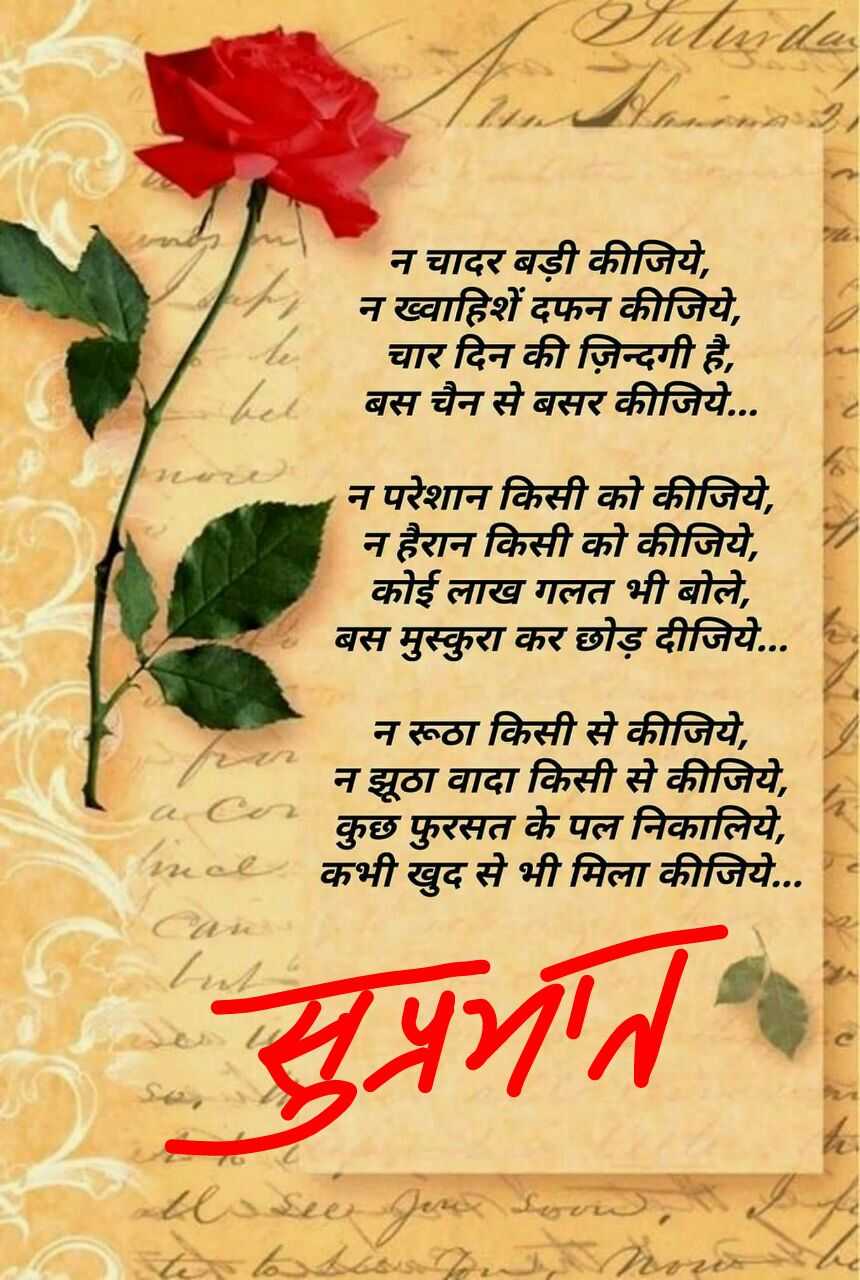 Saturday
न चादर बड़ी कीजिये,
न ख्वाहिशें दफन कीजिये,
चार दिन की ज़िन्दगी है,
बस चैन से बसर कीजिये...
न परेशान किसी को कीजिये,
न हैरान किसी को कीजिये,
कोई लाख गलत भी बोले,
बस मुस्कुरा कर छोड़ दीजिये...
न रूठा किसी से कीजिये,
न झूठा वादा किसी से कीजिये,
कुछ फुरसत के पल निकालिये,
कभी खुद से भी मिला कीजिये...
सुप्रभात
see you soon,